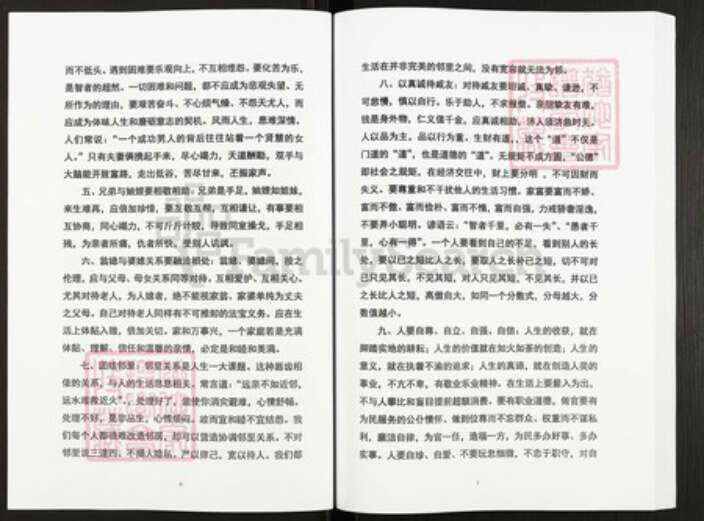 而不低头。遇到困难要乐观向上，不互相埋怨。要化苦为乐，
是智者的超然。一切困难和问题，都不应成为悲观失望、无
所作为的理由，要艰苦奋斗、不心烦气燥、不怨天尤人，而
应成为体味人生和磨砺意志的契机。风雨人生，患难深情，
人们常说：“一个成功男人的背后往往站着一个贤慧的女
人。”只有夫妻俩携起手来，尽心竭力，天道酬勤，双手与
大脑能开致富路，走出低谷，苦尽甘来，丕振家声。
五、兄弟与妯娌要相敬相助：兄弟是手足，妯娌如姐妹，
来生难再，应倍加珍惜，要互敬互帮，互相谦让，有事要相
互协商，同心竭力，不可斤斤计较，导致同室操戈，手足相
残，为亲者所痛，仇者所快，受别人讥讽。
六、翁媳与婆媳关系要融洽相处：翁媳、婆媳间，按之
伦理，应与父母、母女关系同等对待。互相爱护、互相关心。
尤其对待老人，为人媳者，绝不能视家翁、家婆单纯为丈夫
之父母。自己对待老人同样有不可推卸的法宝义务，应在生
活上体贴入微，倍加关切。家和万事兴，一个家庭若是充满
体贴、理解、信任和温馨的亲情，必定是和睦和美满。
七、团结邻里：邻里关系是人生一大课题。这种唇齿相
依的关系，与人的生活息息相关。常言道：“远亲不如近邻，
远水难救近火”。处理好了，能使你消灾避难，心情舒畅。
处理不好，是非丛生，心情烦闷。故而宜和睦不宜结怨。我
们每个人都很难改造邻居，却可以营造协调邻里关系。不对
邻里说三道四，不揭人隐私，严以律己，宽以待人。我们都
6
生活在并非完美的邻里之间，没有宽容就无法为邻。
八、以真诚待戚友：对待戚友要坦诚、真挚、谦逊，不
可怠慢，慎以自行。乐于助人，不求报偿。亲朋挚友有难，
钱是身外物，仁义值千金，应真诚相助，济人须济急时无。
人以品为主，品以行为重，生财有道，这个“道”不仅是
门道的“道”，也是道德的“道”。无规矩不成方圆，“公德”
即社会之规矩。在经济交往中，财上要分明，不可因财而
失义。要尊重和不干扰他人的生活习惯，家富要富而不娇、
富而不傲、富而俭朴、富而不愧，富而自强，力戒骄奢淫逸。
不要弄小聪明。谚语云：“智者千里，必有一失”、“愚者千
里，心有一得”。一个人要看到自己的不足，看到别人的长
处，要以己之短比人之长；要取人之长补己之短，切不可对
已只见其长，不见其短，对人只见其短，不见其长，并以已
之长比人之短，高傲自大，如同一个分数式，分母越大，分
数值越小。
九、人要自尊、自立、自强、自信：人生的收获，就在
脚踏实地的耕耘；人生的价值就在如火如荼的创造；人生的
意义，就在执著不渝的追求；人生的真谛，就在创造人类的
事业，不亢不卑，有敬业乐业精神。在生活上要量入为出，
不与人攀比和盲目提前超额消费。要有职业道德，做官要有
为民服务的公仆情怀、做到位尊而不忘群众、权重而不谋私
利，廉洁自律，为官一任，造福一方，为民多办好事、多办
实事。人要自珍、自爱、不要玩忽细微，不忠于职守，对自
7
FamilySearch